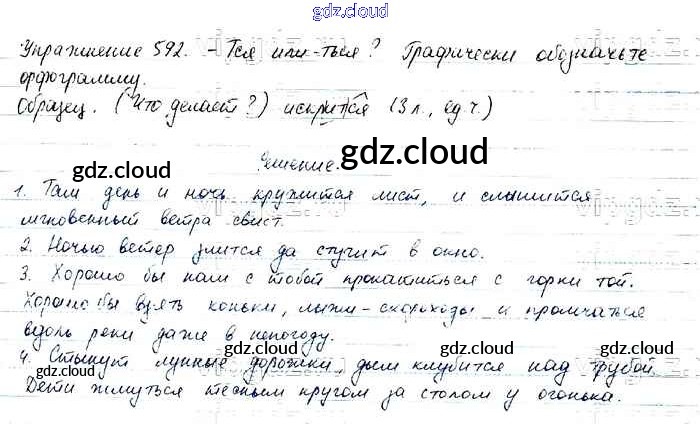 gdz.cloud
Упражнение 592. -Тся или -ться? Графически обозначьте
орфограмму.
Образец. (Что делает?) искрится (3 л., ед. ч.)
gdz.cloud
gdz.cloud
Решение.
gdz.cloud
1. Там день и ночь кружится лист, и слышится
мгновенный ветра свист.
2. Ночью ветер злится да стучит в окно.
3. Хорошо бы нам с тобой прокатиться с горки той.
Хорошо бы взять коньки, лыжи-скороходы и промчаться
вдоль реки даже в непогоду.
gdz.cloud
gdz.cloud
gdz.cloud
4. Стынут лунные дорожки, дым клубится над трубой.
Дети жмуться тесным кругом за столом у огонька.
gdz.cloud
gdz.cloud